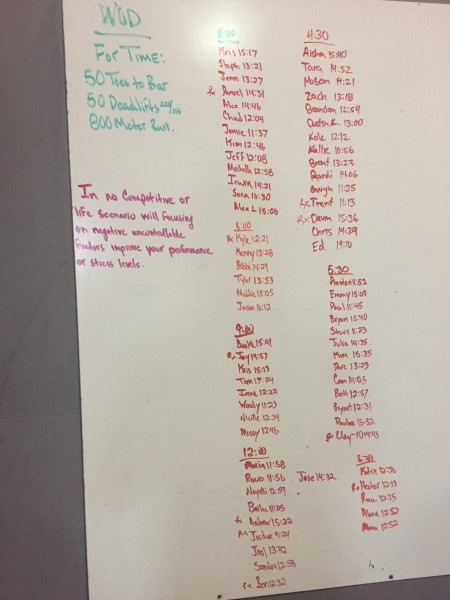 WOD
For Time:
50 Toes to Bar
50 Deadlifts
800 Meter Run.
In no Competitive or
life scenario will focusing
on negative uncontrollable
factors improve your performance
or stress levels.
Kris 15:17
Steph 13:21
Jenn 13:27
14:31
Alex 14:46
Chad 12:04
Jamie 11:37
Kim 12:46
Jeff 12:08
Michelle 12:58
Irwin 14:21
Susan 16:30
Alan L 15:06
Rx Kyle 12:21
Kenny 13:28
Bobbi 14:29
Tyler 13:53
15:05
Jason 11:12
9:00
Brooke 15:41
Rx Jay 14:57
Kris 15:13
Tom 17:24
Irene 12:22
Woody 11:23
Nicole 12:39
Missy 12:46
12:00
Maria 11:58
11:56
12:59
11:05
Rx Andrew 15:22
Rx Jordan 9:24
Joel 13:42
Sandra 12:58
12:32
4:30
Aisha 15:40
Tara 14:52
Mason 14:21
Zach 13:18
Brandon 12:54
Dustin K. 13:00
Kole 12:12
Kallie 10:56
Brent 13:23
Randi 14:06
Gwyn 11:35
Rx Trent 11:13
Rx Devin 15:36
Chris 14:29
Ed 19:10
5:30
Preston 11:52
Emmy 15:08
Paul 11:45
Bryan 15:40
Steve 11:23
Julie 14:35
Kim 15:35
Dave 13:23
Cam 14:05
Brett 12:57
Bryant 12:31
15:32
Rx Clay
Jose 14:32
6:30
Katie 12:36
Rx Hector 12:13
12:15
Alana 12:32
12:52